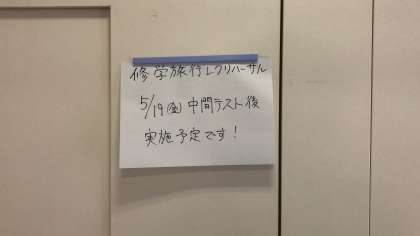 修学旅行レクリハーサル
5/19(金)中間テスト後
実施予定です!